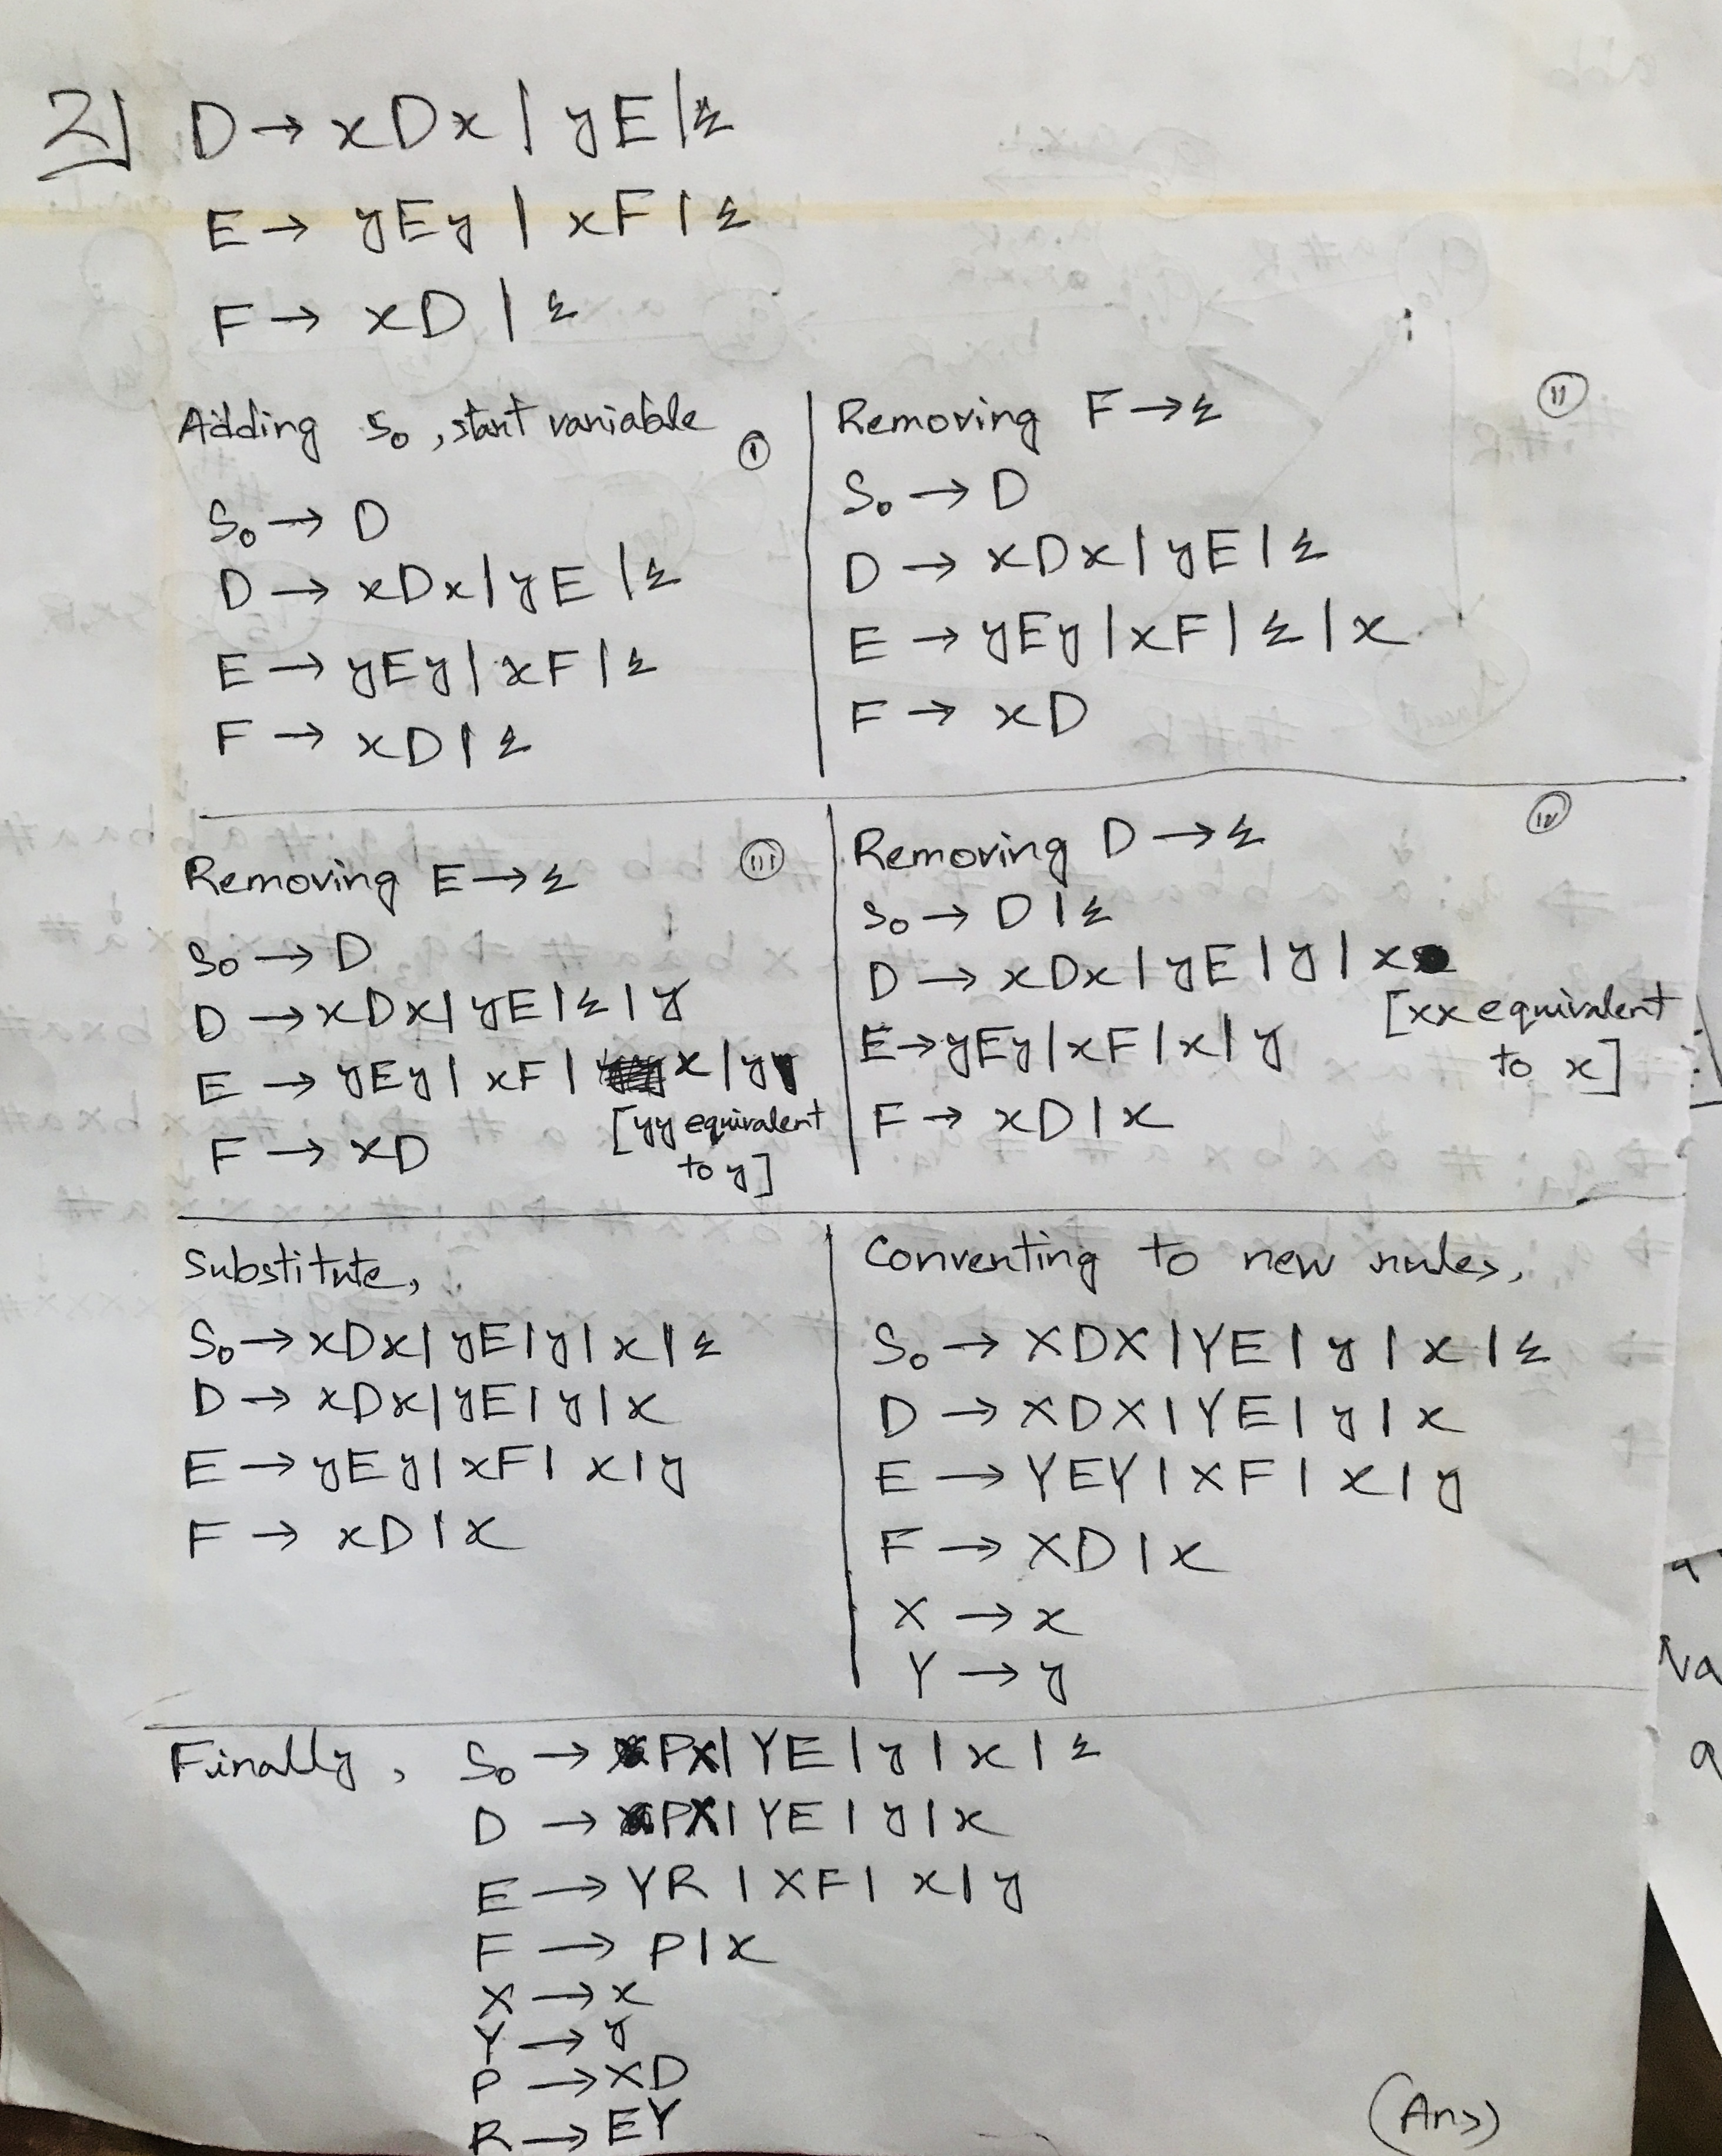 2] D → xDx | yE | ε
E → yEy | xF | ε
F → xD | ε
Adding S₀, start variable (i)
S₀ → D
D → xDx | yE | ε
E → yEy | xF | ε
F → xD | ε
Removing F → ε (ii)
S₀ → D
D → xDx | yE | ε
E → yEy | xF | ε | x
F → xD
Removing E → ε (iii)
S₀ → D
D → xDx | yE | ε | y
E → yEy | xF | x | y
[yy equivalent
to y]
F → xD
Removing D → ε (iv)
S₀ → D | ε
D → xDx | yE | y | x
[xx equivalent
to x]
E → yEy | xF | x | y
F → xD | x
Substitute,
S₀ → xDx | yE | y | x | ε
D → xDx | yE | y | x
E → yEy | xF | x | y
F → xD | x
Converting to new rules,
S₀ → XDX | YE | y | x | ε
D → XDX | YE | y | x
E → YEY | XF | x | y
F → XD | x
X → x
Y → y
Finally, S₀ → PX | YE | y | x | ε
D → PX | YE | y | x
E → YR | XF | x | y
F → P | x
X → x
Y → y
P → XD
R → EY
(Ans)